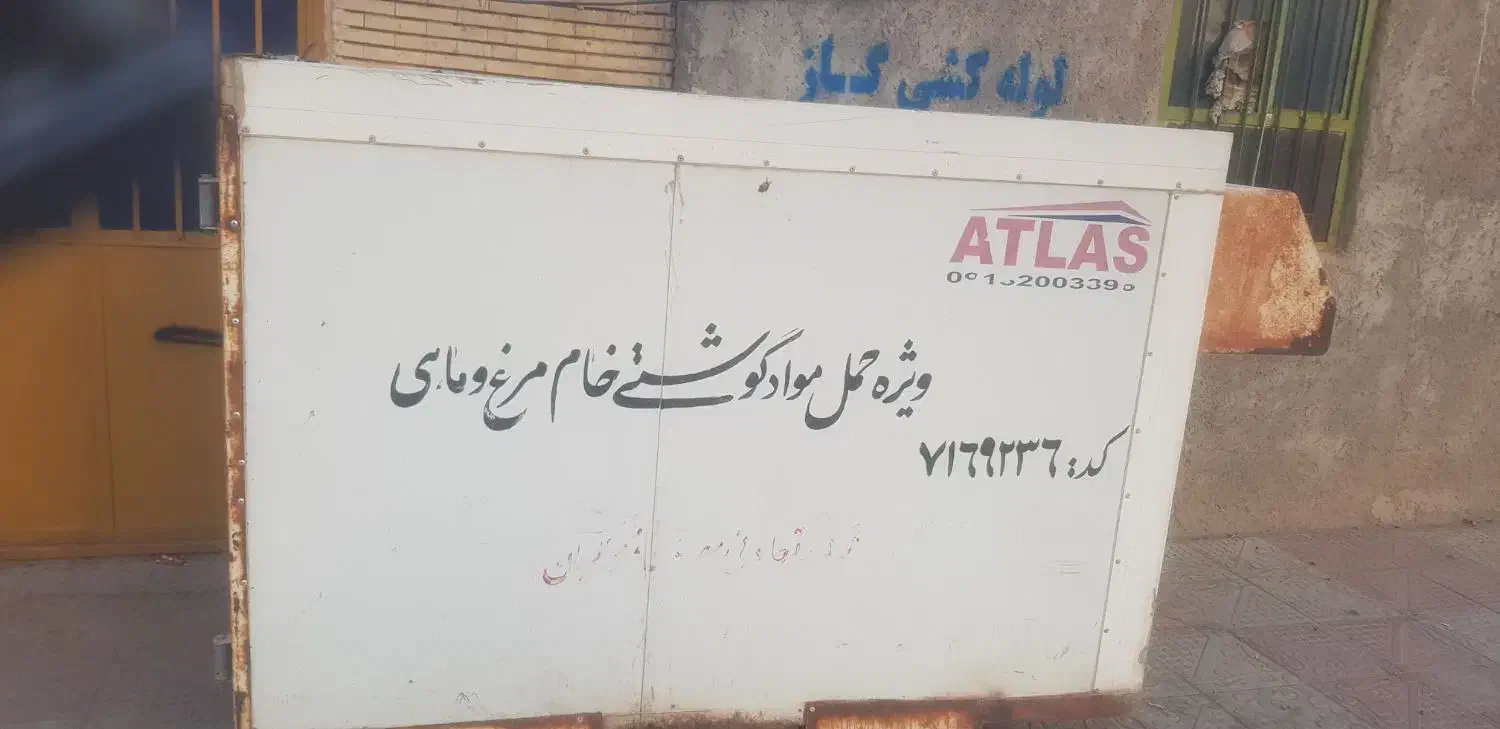 لوله کشی گاز
ATLAS
ویژه حمل مواد گوشتی خام مرغ و ماهی
کد: ۷۱۶۹۲۳۶